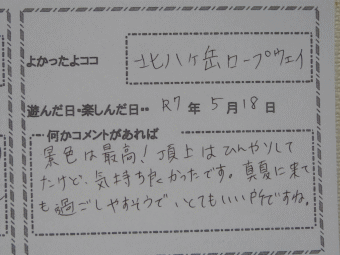 よかったよココ 北八ヶ岳ロープウェイ
遊んだ日・楽しんだ日・・ R7年5月18日
何かコメントがあれば
景色は最高!頂上はひんやりして
たけど、気持ち良かったです。真夏に来て
も過ごしやすそうでとてもいい所ですね。